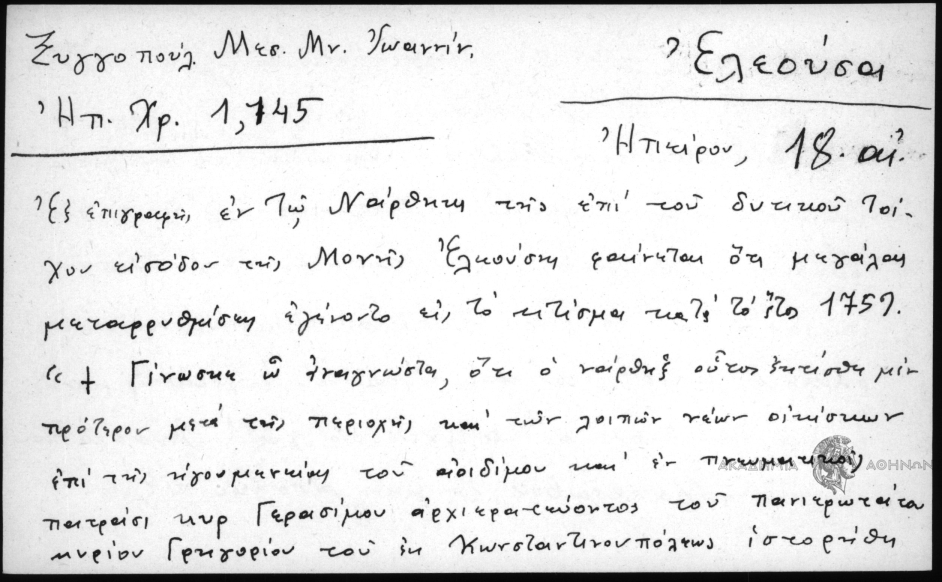 Ξυγγοπούλ. Μεσ. Μν. Ἰωαννίν.
Ἐλεούσα
Ἠπ. Χρ. 1,145
Ἠπείρου, 18. αἰ.
Ἐξ ἐπιγραφῆς ἐν τῷ Νάρθηκι τῆς ἐπί τοῦ δυτικοῦ τοί-
χου εἰσόδου τῆς Μονῆς Ἐλεούσης φαίνεται ὅτι μεγάλαι
μεταρρυθμίσεις ἐγένοντο εἰς τό κτίσμα κατά τό ἔτος 1759.
« † Γίνωσκε ὦ ἀναγνῶστα, ὅτι ὁ νάρθηξ οὗτος ἐκτίσθη μέν
πρότερον μετά τῆς περιοχῆς καί τῶν λοιπῶν νέων οἰκίσκων
ἐπί τῆς ἡγουμενείας τοῦ ἀοιδίμου καί ἐν πνευματικοῖς
ΑΚΑΔΗΜΙΑ ΑΘΗΝΩΝ
πατράσι κυρ Γερασίμου ἀρχιερατεύοντος τοῦ πανιερωτάτου
κυρίου Γρηγορίου τοῦ ἐκ Κωνσταντινουπόλεως ἱστορήθη